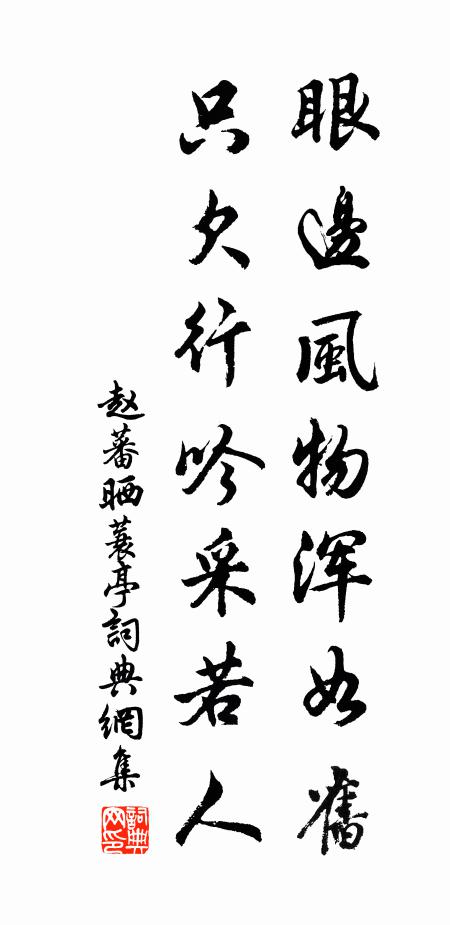 眼邊風物浑如舊
只欠行吟采若人
赵蕃晒蓑亭詞典網集
詞典网印